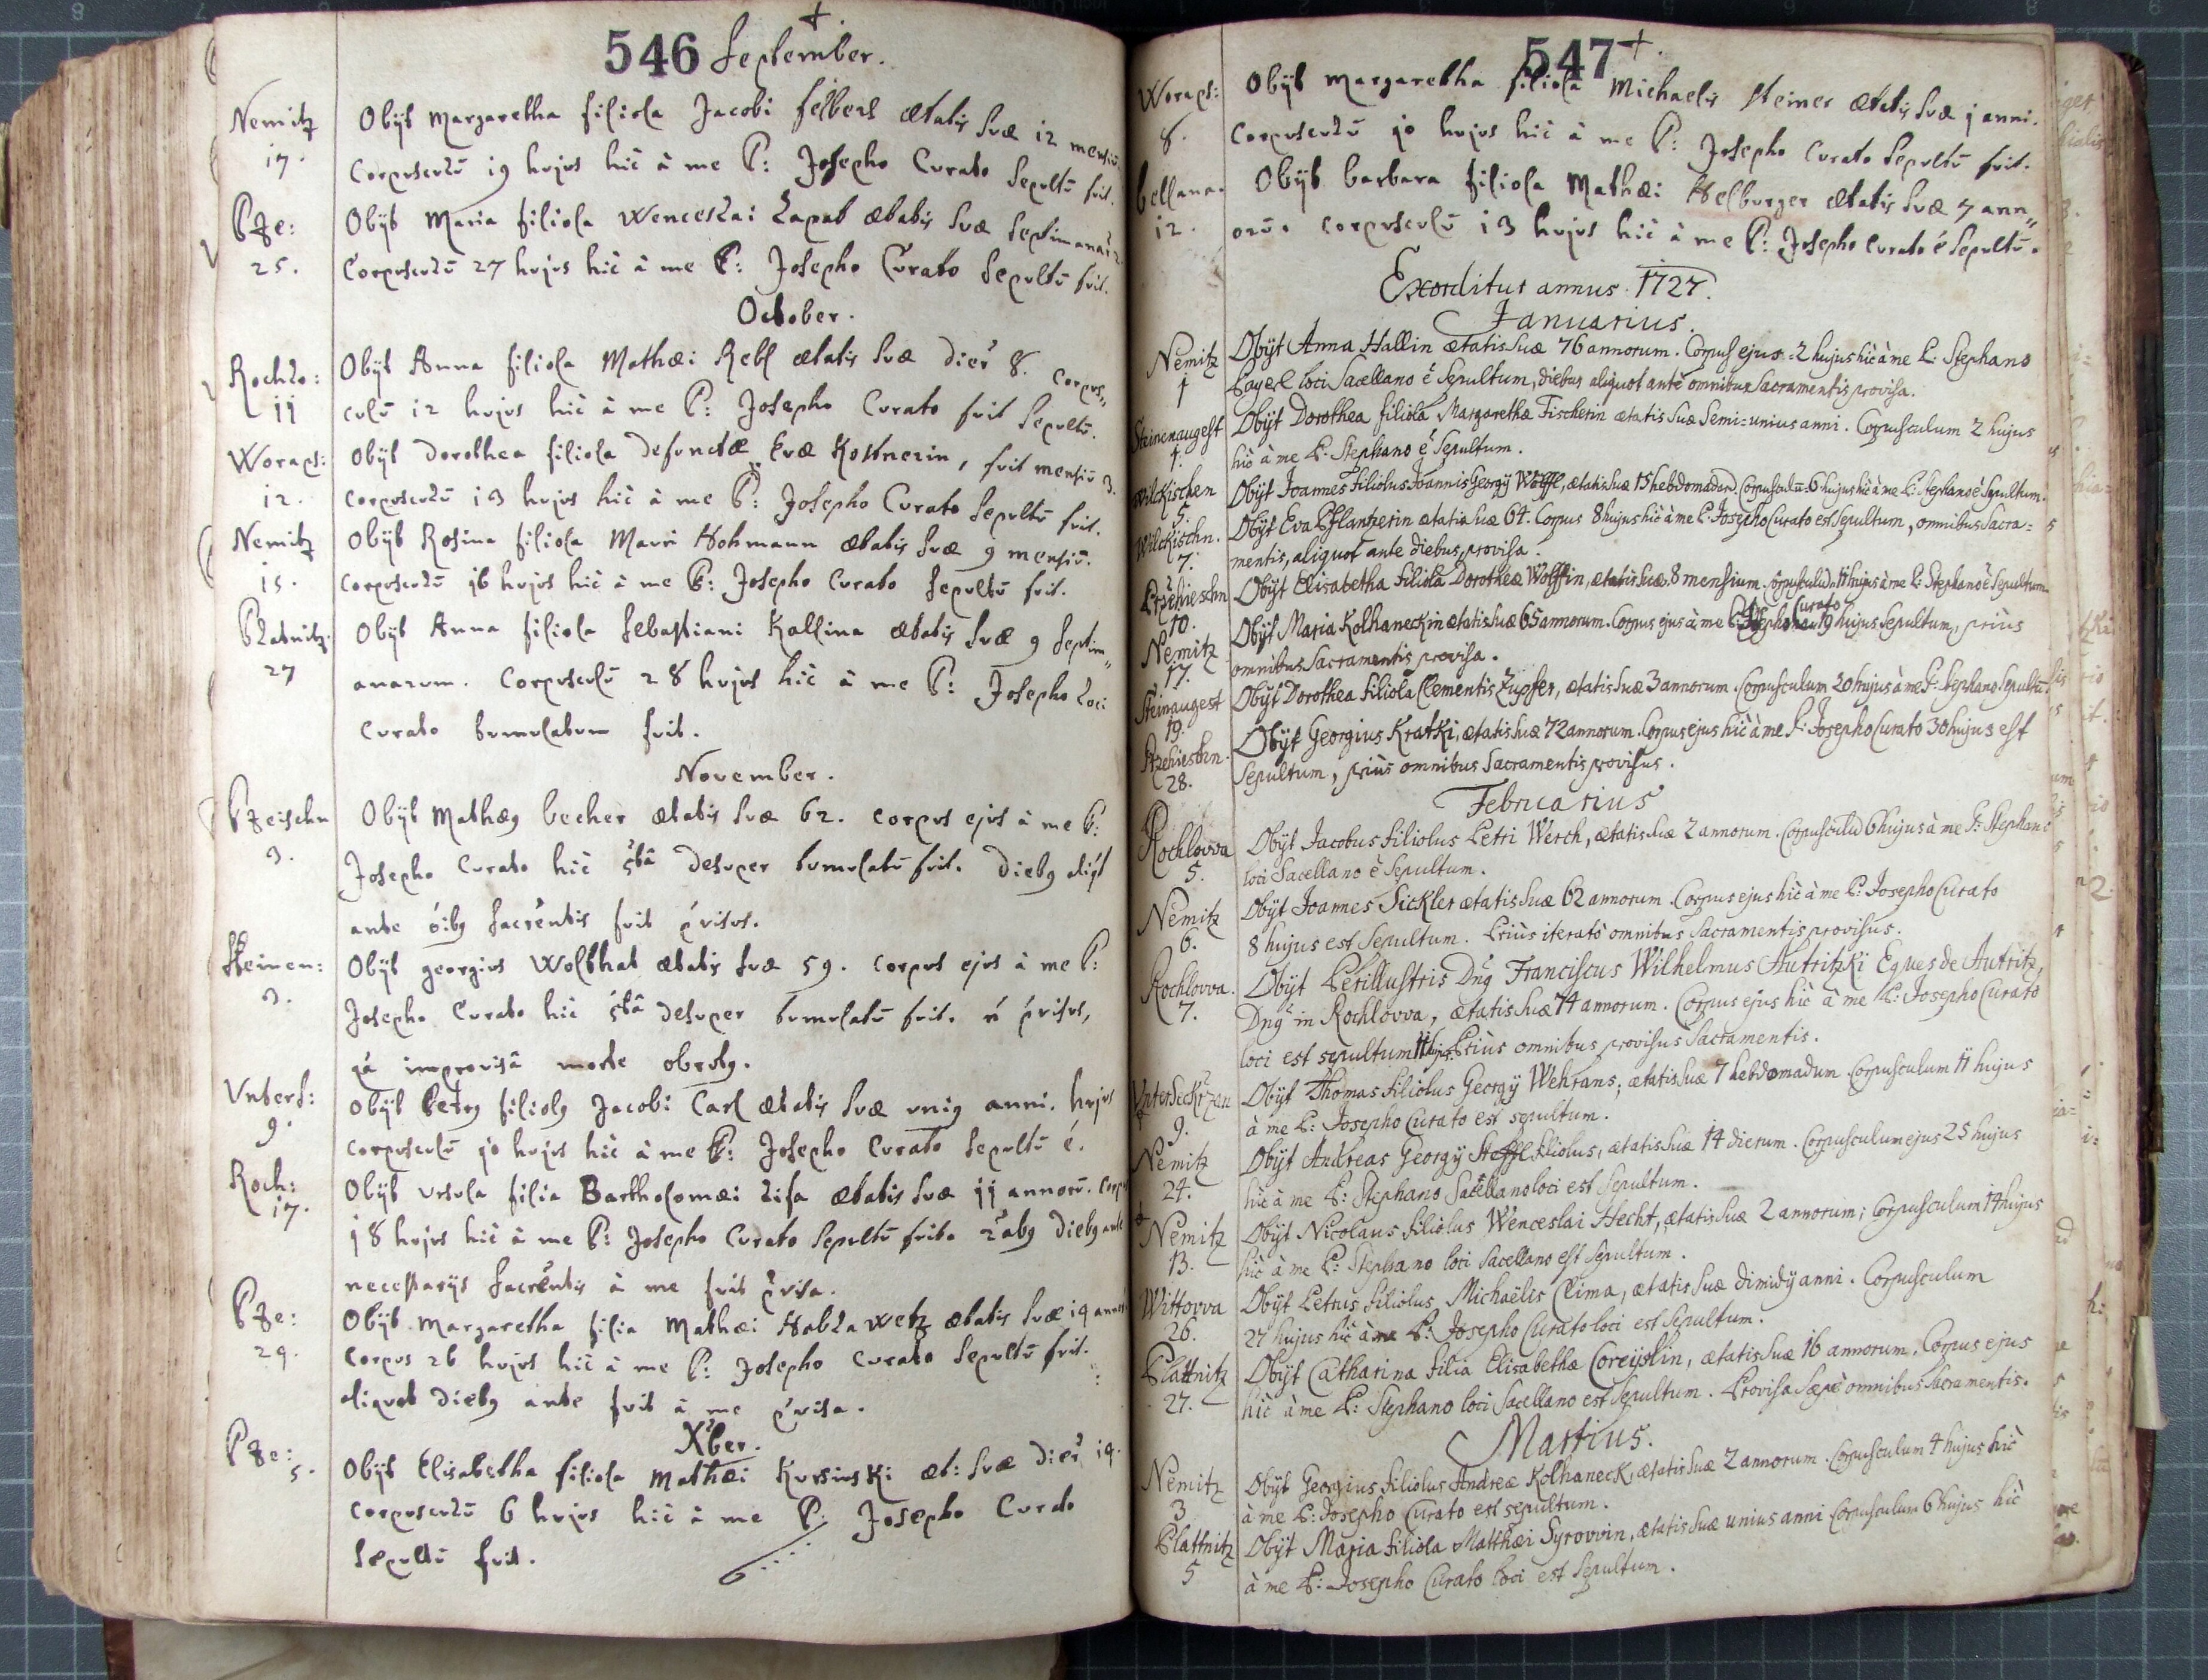 546 September.
Nemitz Obÿt Margaretha filiola Jacobi felbers ætatis suæ 12 mensiū.
17. Corpusculū 19 hujus hic à me P: Josepho Curato Sepultū fuit.
Pze: Obÿt Maria filiola Wenceslai Lapat ætatis suæ
25. Corpusculū 27 hujus hic à me P: Josepho Curato Sepultū fuit.
October.
Rochlo: Obÿt Anna filiola Mathæi Rebl ætatis suæ dier 8. Corpus„
11 culū 12 hujus hic à me P: Josepho Curato fuit Sepultū.
Woraps: Obÿt Dorothea filiola defunctæ Evæ Kostnerin, fuit mensiū 3.
12. Corpusculū 13 hujus hic à me P: Josepho Curato Sepultū fuit.
Nemitz Obÿt Rosina filiola Mauri Hohmann ætatis suæ 9 mensiū.
15. Corpusculū 16 hujus hic à me P: Josepho Curato Sepultū fuit.
Platnitz. Obÿt Anna filiola Sebastiani Kallina ætatis suæ 9 Septim„
27 anarum. Corpusculū 28 hujus hic à me P: Josepho Loci
Curato tumulatum fuit.
November.
Pzeischn Obÿt Mathæ9 becher ætatis suæ 62. Corpus ejus à me P:
3. Josepho Curato hic desuper tumulatū fuit. dieb9 aliqt
ante oīb9 Sacrentis fuit pvisus.
Steinen: Obÿt georgius Wolthat ætatis suæ 59. Corpus ejus à me P:
3. Josepho Curato hic desuper tumulatū fuit. n pvisus,
qa improvisâ morte obrut9.
Unters: Obÿt Petr9 filiol9 Jacobi Carl ætatis suæ uni9 anni. hujus
9. Corpusculū 10 hujus hic à me P: Josepho Curato Sepultū é.
Roch: Obÿt Ursula filia Bartholomæi Lisa ætatis suæ 11 annorū. Corp
17. 18 hujus hic à me P: Josepho Curato Sepultū fuit. dieb9 ante
necessarÿs Sacrentis à me fuit pvisa.
Pze: Obÿt Margaretha filia Mathæi Hablawetz ætatis suæ 19
24. Corpus 26 hujus hic à me P: Josepho Curato Sepultū fuit.
aliquot dieb9 ante fuit à me pvisa.
Xber.
Pze: Obÿt Elisabetha filiola Mathæi Kursinski æt: suæ dier 14.
5. Corpusculū 6 hujus hic à me P: Josepho Curato
Sepultū fuit.
547
Woraps: Obÿt Margaretha filiola Michaelis Steiner ætatis suæ 1 anni.
8. Corpusculū 10 hujus hic à me P: Josepho Curato Sepultū fuit.
bellana. Obÿt barbara filiola Mathæi Helburger ætatis suæ 7 ann„
12. orū. Corpusculū 13 hujus hic à me P: Josepho Curato é Sepultū.
Exorditur annus 1727.
Januarius.
Nemitz Obÿt Anna Hallin ætatis suæ 76 annorum. Corpus ejus 2 hujus hic à me P: Stephano
1 Payerl loci Sacellano é Sepultum, diebus aliquot ante omnibus Sacramentis provisa.
Steinenaugest Obÿt Dorothea filiola Margarethæ Fischerin ætatis suæ Semi-unius anni. Corpusculum 2 hujus
1. hic à me P: Stephano é Sepultum.
Wilckischen Obÿt Joannes filiolus Joannis Georgÿ Wölffl, ætatis suæ 15 hebdomadar. Corpusculū 6 hujus hic à me P: Stephano é Sepultum.
5.
Wilckischn. Obÿt Eva Pflantzerin ætatis suæ 64. Corpus 8 hujus hic à me P: Josepho Curato est Sepultum, omnibus Sacra-
7. mentis, aliquot ante diebus, provisa.
Przehieschn Obÿt Elisabetha filiola Dorotheæ Wolffin, ætatis suæ 8 mensium. Corpusculū 11 hujus à me P: Stephano é Sepultum.
10.
Nemitz Obÿt Maria Kolhaneckin ætatis suæ 65 annorum. Corpus ejus à me P: Josepho Curato 19 hujus Sepultum, prius
17. omnibus Sacramentis provisa.
Steinaugest Obÿt Dorothea filiola Clementis Zupfer, ætatis suæ 3 annorum. Corpusculum 20 hujus à me P: Stephano Sepultū
19.
Przehieschn. Obÿt Georgius Kratki, ætatis suæ 72 annorum. Corpus ejus hic à me P: Josepho Curato 30 hujus est
28. Sepultum, prius omnibus Sacramentis provisus.
Februarius
Rochlovva Obÿt Jacobus filiolus Petri Werch, ætatis suæ 2 annorum. Corpusculū 6 hujus à me P: Stephano
5. loci Sacellano é Sepultum.
Nemitz Obÿt Joannes Sickler ætatis suæ 62 annorum. Corpus ejus hic à me P: Josepho Curato
6. 8 hujus est Sepultum. Prius iterato omnibus Sacramentis provisus.
Rochlovva. Obÿt Perillustris Dn9 Franciscus Wilhelmus Hutritzki Eques de Hutritz,
7. Dn9 in Rochlovva, ætatis suæ 74 annorum. Corpus ejus hic à me P: Josepho Curato
loci est sepultum 11 hujus. Prius omnibus provisus Sacramentis.
Untersekrzan Obÿt Thomas filiolus Georgÿ Wehrans; ætatis suæ 7 hebdomadum. Corpusculum 11 hujus
9. à me P: Josepho Curato est sepultum.
Nemitz Obÿt Andreas Georgÿ Steffl filiolus, ætatis suæ 14 dierum. Corpusculum ejus 25 hujus
24. hic à me P: Stephano Sacellano loci est Sepultum.
Nemitz Obÿt Nicolaus filiolus Wenceslai Hecht, ætatis suæ 2 annorum; Corpusculum 14 hujus
13. hic à me P: Stephano loci Sacellano est Sepultum.
Wittovva Obÿt Petrus filiolus Michaëlis Clima, ætatis suæ dimidÿ anni. Corpusculum
26. 27 hujus hic à me P: Josepho Curato loci est Sepultum.
Plattnitz Obÿt Catharina filia Elisabethæ Coreÿslin, ætatis suæ 16 annorum. Corpus ejus
27. hic à me P: Stephano loci Sacellano est Sepultum. Provisa Sæpe omnibus Sacramentis.
Martius.
Nemitz Obÿt Georgius filiolus Andreæ Kolhaneck, ætatis suæ 2 annorum. Corpusculum 4 hujus hic
3 à me P: Josepho Curato est sepultum.
Plattnitz Obÿt Maria filiola Matthæi Syrovvin, ætatis suæ unius anni Corpusculum 6 hujus hic
5 à me P: Josepho Curato loci est Sepultum.